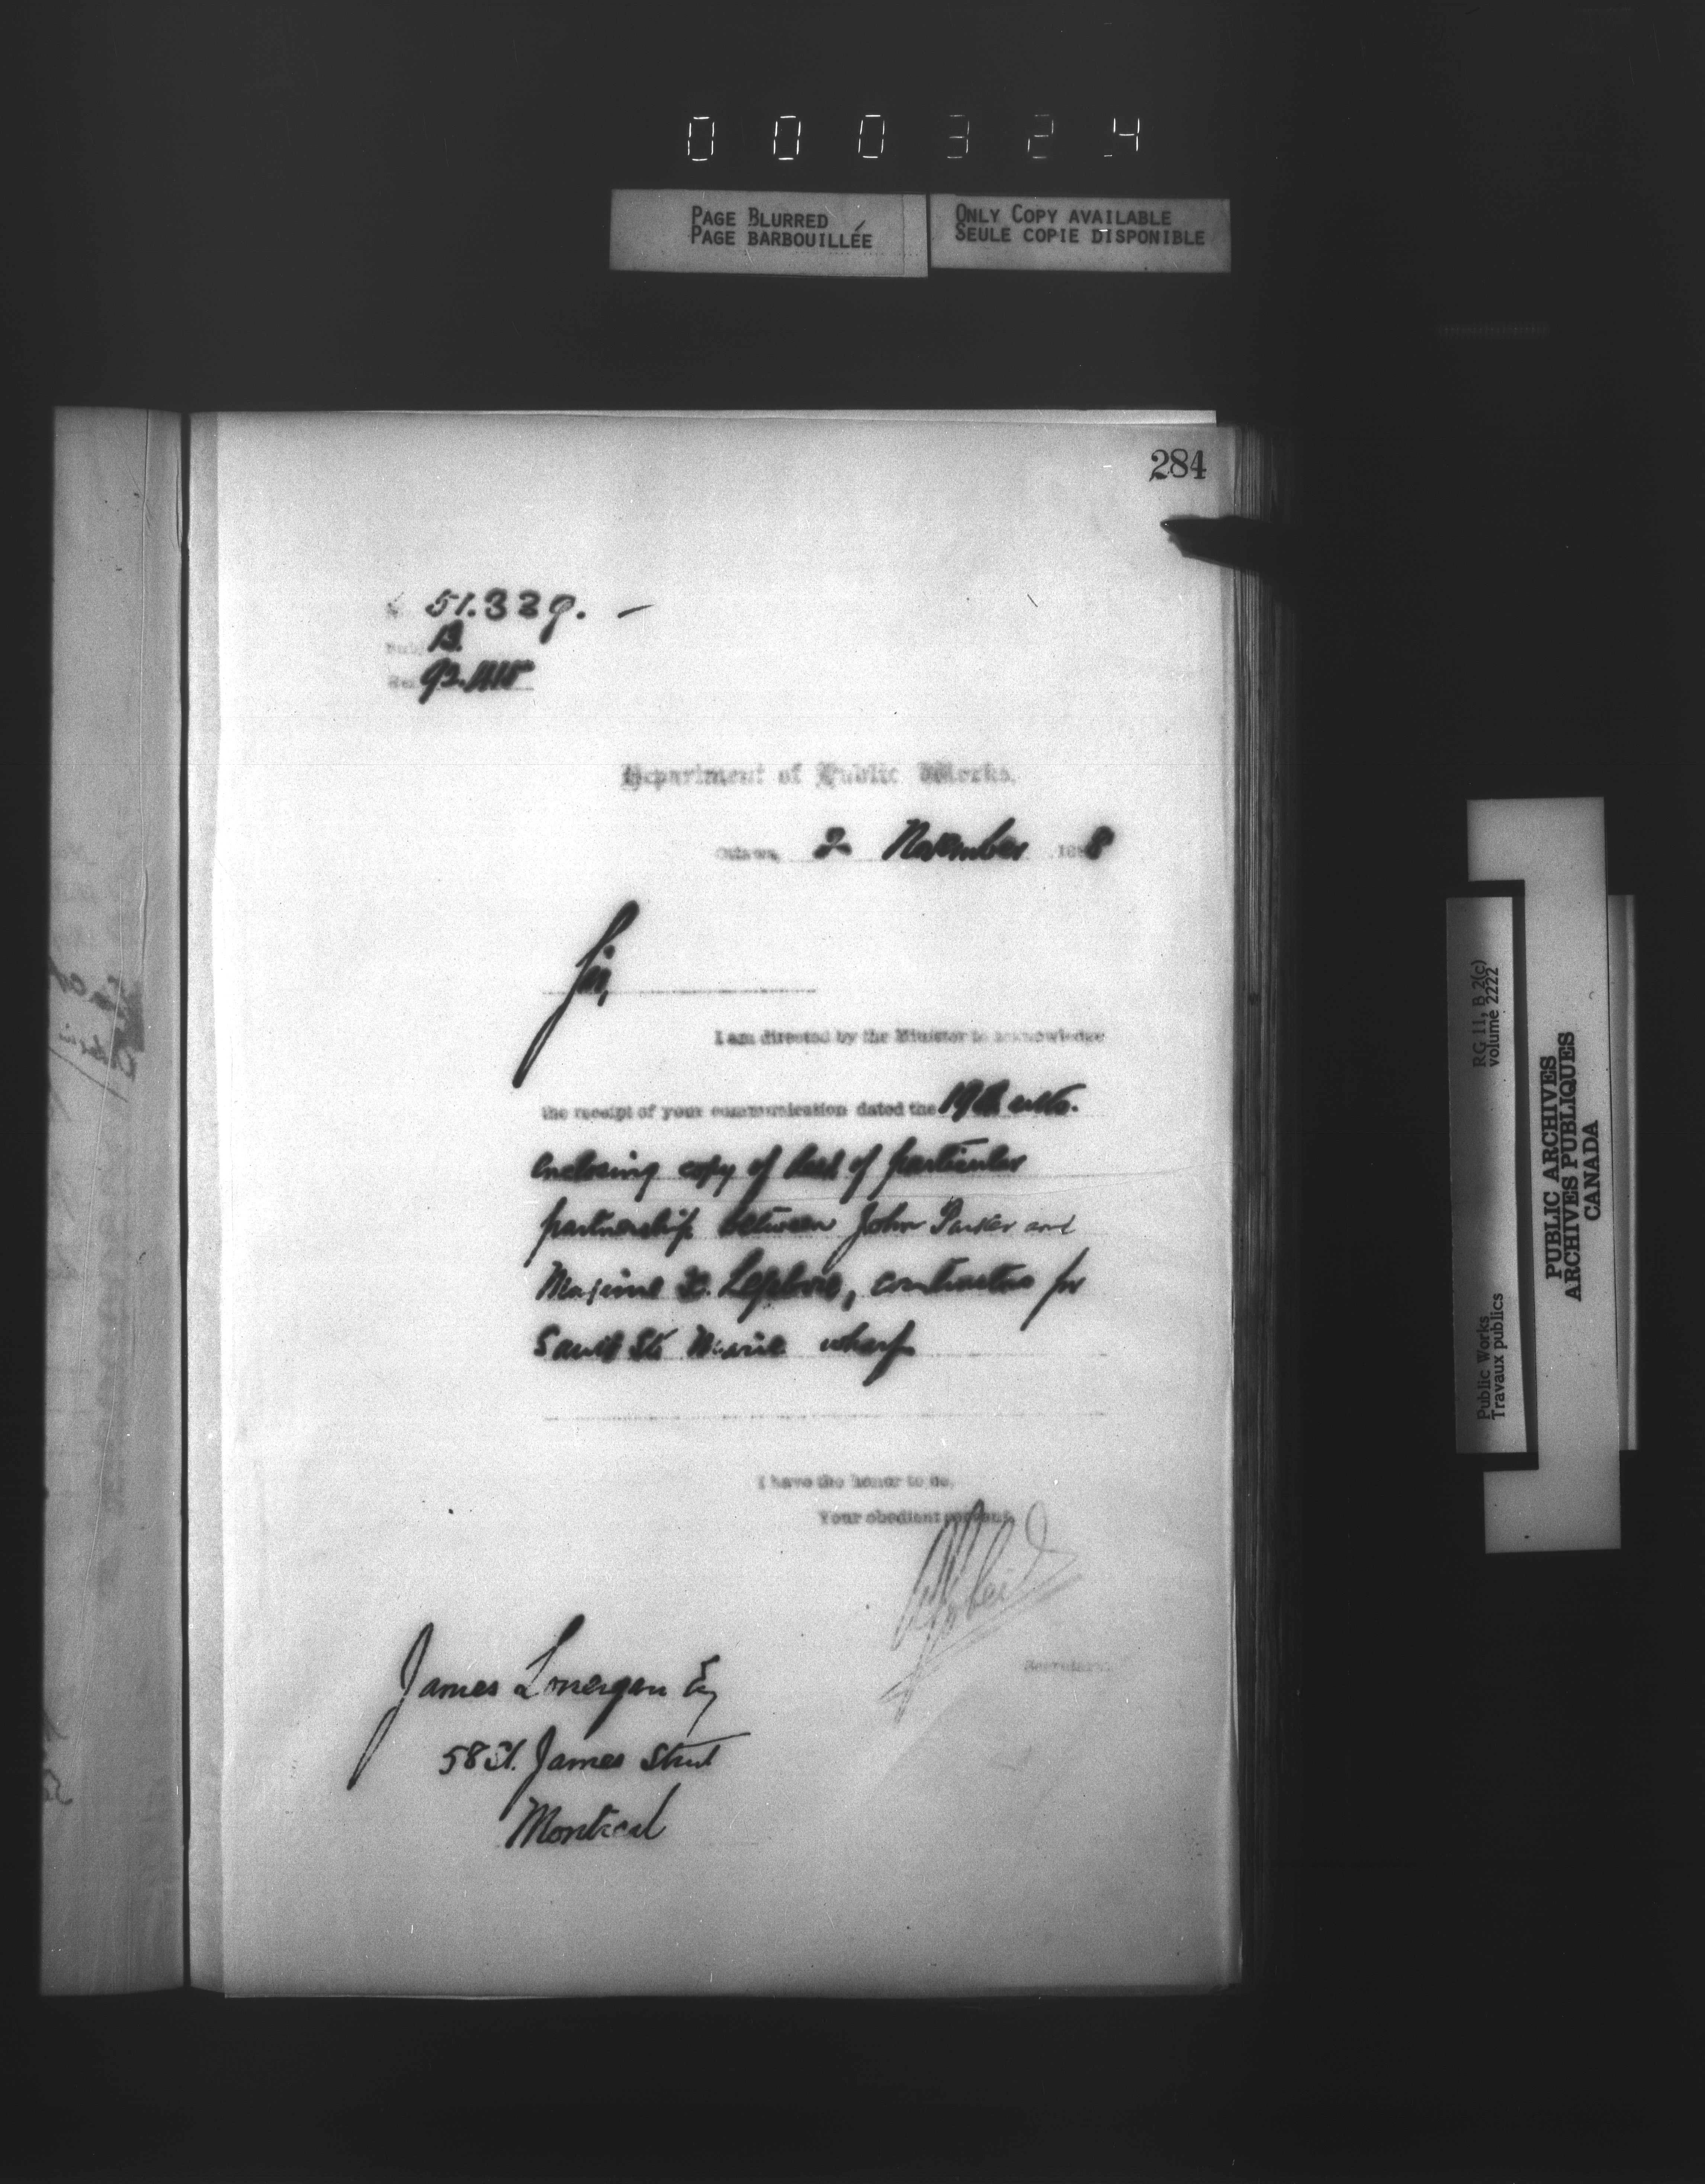 000324
PAGE BLURRED
PAGE BARBOUILLÉE
ONLY COPY AVAILABLE
SEULE COPIE DISPONIBLE
284
51.329. —
Sub. B.
Department of Public Works.
Ottawa, 2 November 1888
Sir,
I am directed by the Minister to acknowledge
the receipt of your communication dated the 19th ulto.
enclosing copy of deed of particular
partnership between John Parker and
Maxime Lefebvre, contractors for
Sault Ste Marie wharf
I have the honor to be,
Your obedient servant,
Secretary.
James Lonergan Esq
58 St. James Street
Montreal
RG 11, B 2(c)
volume 2222
Public Works
Travaux publics
PUBLIC ARCHIVES
ARCHIVES PUBLIQUES
CANADA